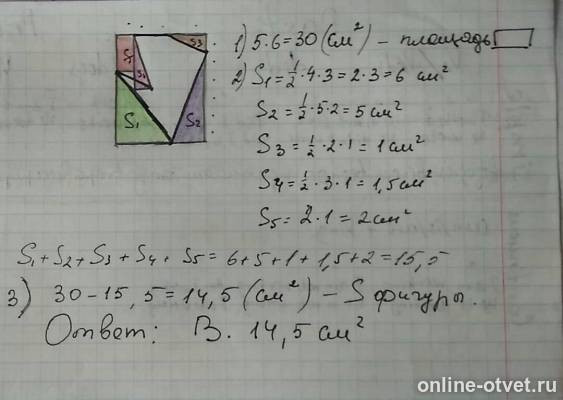 S₅ S₃ S₄ S₁ S₂
1) 5·6=30 (см²) – площадь
2) S₁ = 1/2 · 4 · 3 = 2 · 3 = 6 см²
S₂ = 1/2 · 5 · 2 = 5 см²
S₃ = 1/2 · 2 · 1 = 1 см²
S₄ = 1/2 · 3 · 1 = 1,5 см²
S₅ = 2 · 1 = 2 см²
S₁ + S₂ + S₃ + S₄ + S₅ = 6+5+1+1,5+2 = 15,5
3) 30 – 15,5 = 14,5 (см²) – S фигуры.
Ответ: В. 14,5 см²
online-otvet.ru